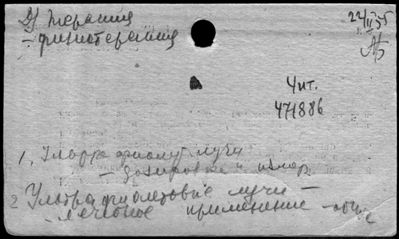 Терапия
– физиотерапия
24/II 55
АБ
Чит.
471886
1. Ультрафиолет. лучи
– дозировка и измер.
2 Ультрафиолетовые лучи –
– лечебное применение – общие